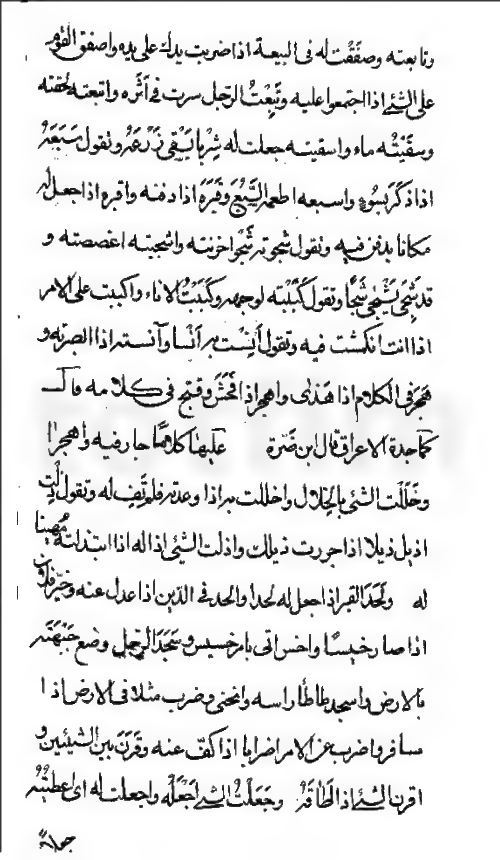 وتابعته وصفقت له فى البيعة اذا ضربت يدك على يده واصفق القوم
على الشئ اذا اجتمعوا عليه وتَبِعْتُ الرجل سرت فى اَثَره واتبعته لحقته
وسقَيْتُه ماء واسقيته جعلت له شِربا يَسْقى زَرْعَهُ وتقول سَبَعَهُ
اذا ذكَرَ بسُوء واسبعه اطعمه السَّبُعَ وقَبَرَهُ اذا دفنه واقبره اذا جعل له
مكانا يدفن فيه وتقول شجوته شَجْوًا حزنته واشجيته اغصصته و
قد شَجِىَ يَشْجَى شَجًا وتقول كَبَبْتُه لوجهه وكَبَبْتُ الاناء واكببت على الامر
اذا انت انكمشت فيه وتقول اَنِسْت به اُنْسا وآنسته اذا ابصرته و
هَجَرَ فى الكلام اذا هَذَى واهجر اذا اَفْحَشَ وقبح فى كلامه قال
كماجدة الاعراق قال ابن ضَرّة عليها كلاما جار فيه واهجرا
وخَلَلْت الشئ بالخِلال واخللت به اذا وعدته فلم تَفِ له وتقول ذُلْتِ
اذيل ذيلا اذا جررت ذيلك واذلت الشئ اذاله اذا ابتذلته مُهِينا
له ولَحَدَ القبر اذا جعل له لحدا والحد فى الدّين اذا عدل عنه وخَسَّ فلان
اذا صار خسيسًا واخس اتى بامر خسيس وسَجَدَ الرّجل وضع جَبْهَتَه
بالارض واسجد طاطأ راسه وانحنى وضرب مثلا فى الارض اذا
سافر واضرب عن الامر اضرابا اذا كفّ عنه وقَرَنَ بين الشيئين و
اقرن الشئ اذا اَطَاقَهُ وجَعَلْتُ الشئ اَجْعَلُه واجعلت له اى اعطيته
جعلاً